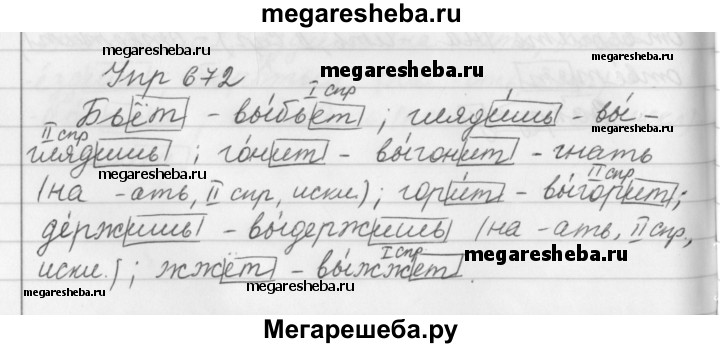 megaresheba.ru
megaresheba.ru
megaresheba.ru
megaresheba.ru
Упр 672
I спр
Бьёт - выбьет ; глядишь - вы-
II спр
глядишь ; гонит - выгонит - гнать
II спр
(на -ать, II спр, искл.) ; горит - выгорит ;
держишь - выдержишь (на -ать, II спр,
I спр
искл.) ; жжёт - выжжет
megaresheba.ru
megaresheba.ru
megaresheba.ru
Мегарешеба.ру